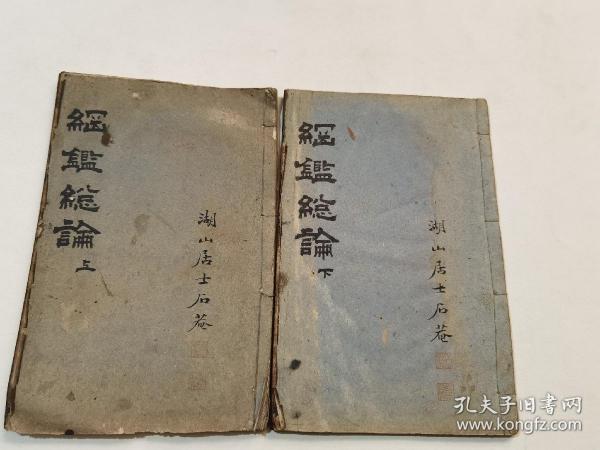 綱鑑総論上
湖山居士石菴
綱鑑総論下
湖山居士石菴
孔夫子旧书网